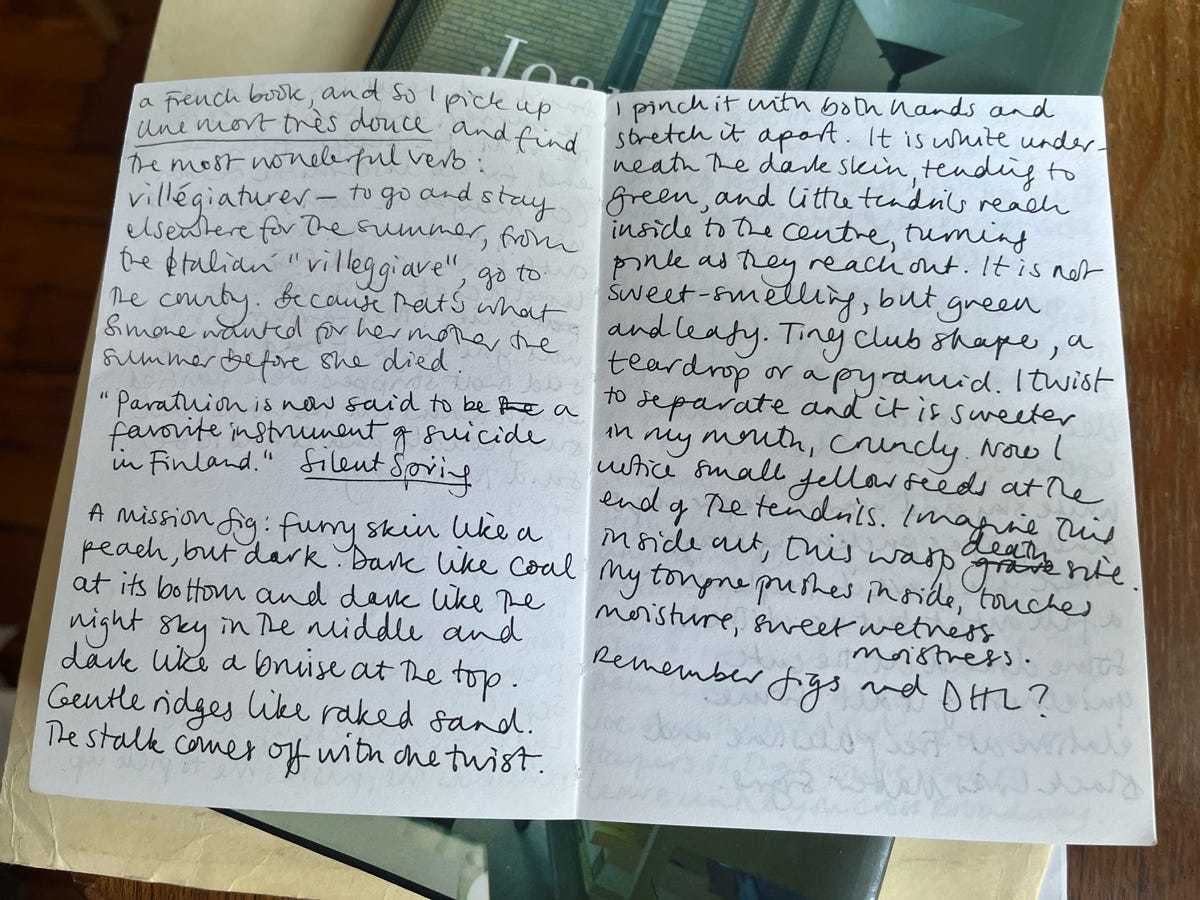 Joa
a French book, and so I pick up
une mort très douce and find
the most wonderful verb:
villégiaturer – to go and stay
elsewhere for the summer, from
the Italian "villeggiare", go to
the county. Because that's what
Simone wanted for her mother the
summer before she died.
"Parathion is now said to be the a
favorite instrument of suicide
in Finland." Silent Spring
A mission fig: furry skin like a
peach, but dark. Dark like coal
at its bottom and dark like the
night sky in the middle and
dark like a bruise at the top.
Gentle ridges like raked sand.
The stalk comes off with one twist.
I pinch it with both hands and
stretch it apart. It is white under-
neath the dark skin, tending to
green, and little tendrils reach
inside to the centre, turning
pink as they reach out. It is not
sweet-smelling, but green
and leafy. Tiny club shape, a
teardrop or a pyramid. I twist
to separate and it is sweeter
in my mouth, crunchy. Now I
notice small yellow seeds at the
end of the tendrils. Imagine this
inside out, this wasp grave death site.
My tongue pushes inside, touches
moisture, sweet wetness
moistress.
Remember figs and DHL?